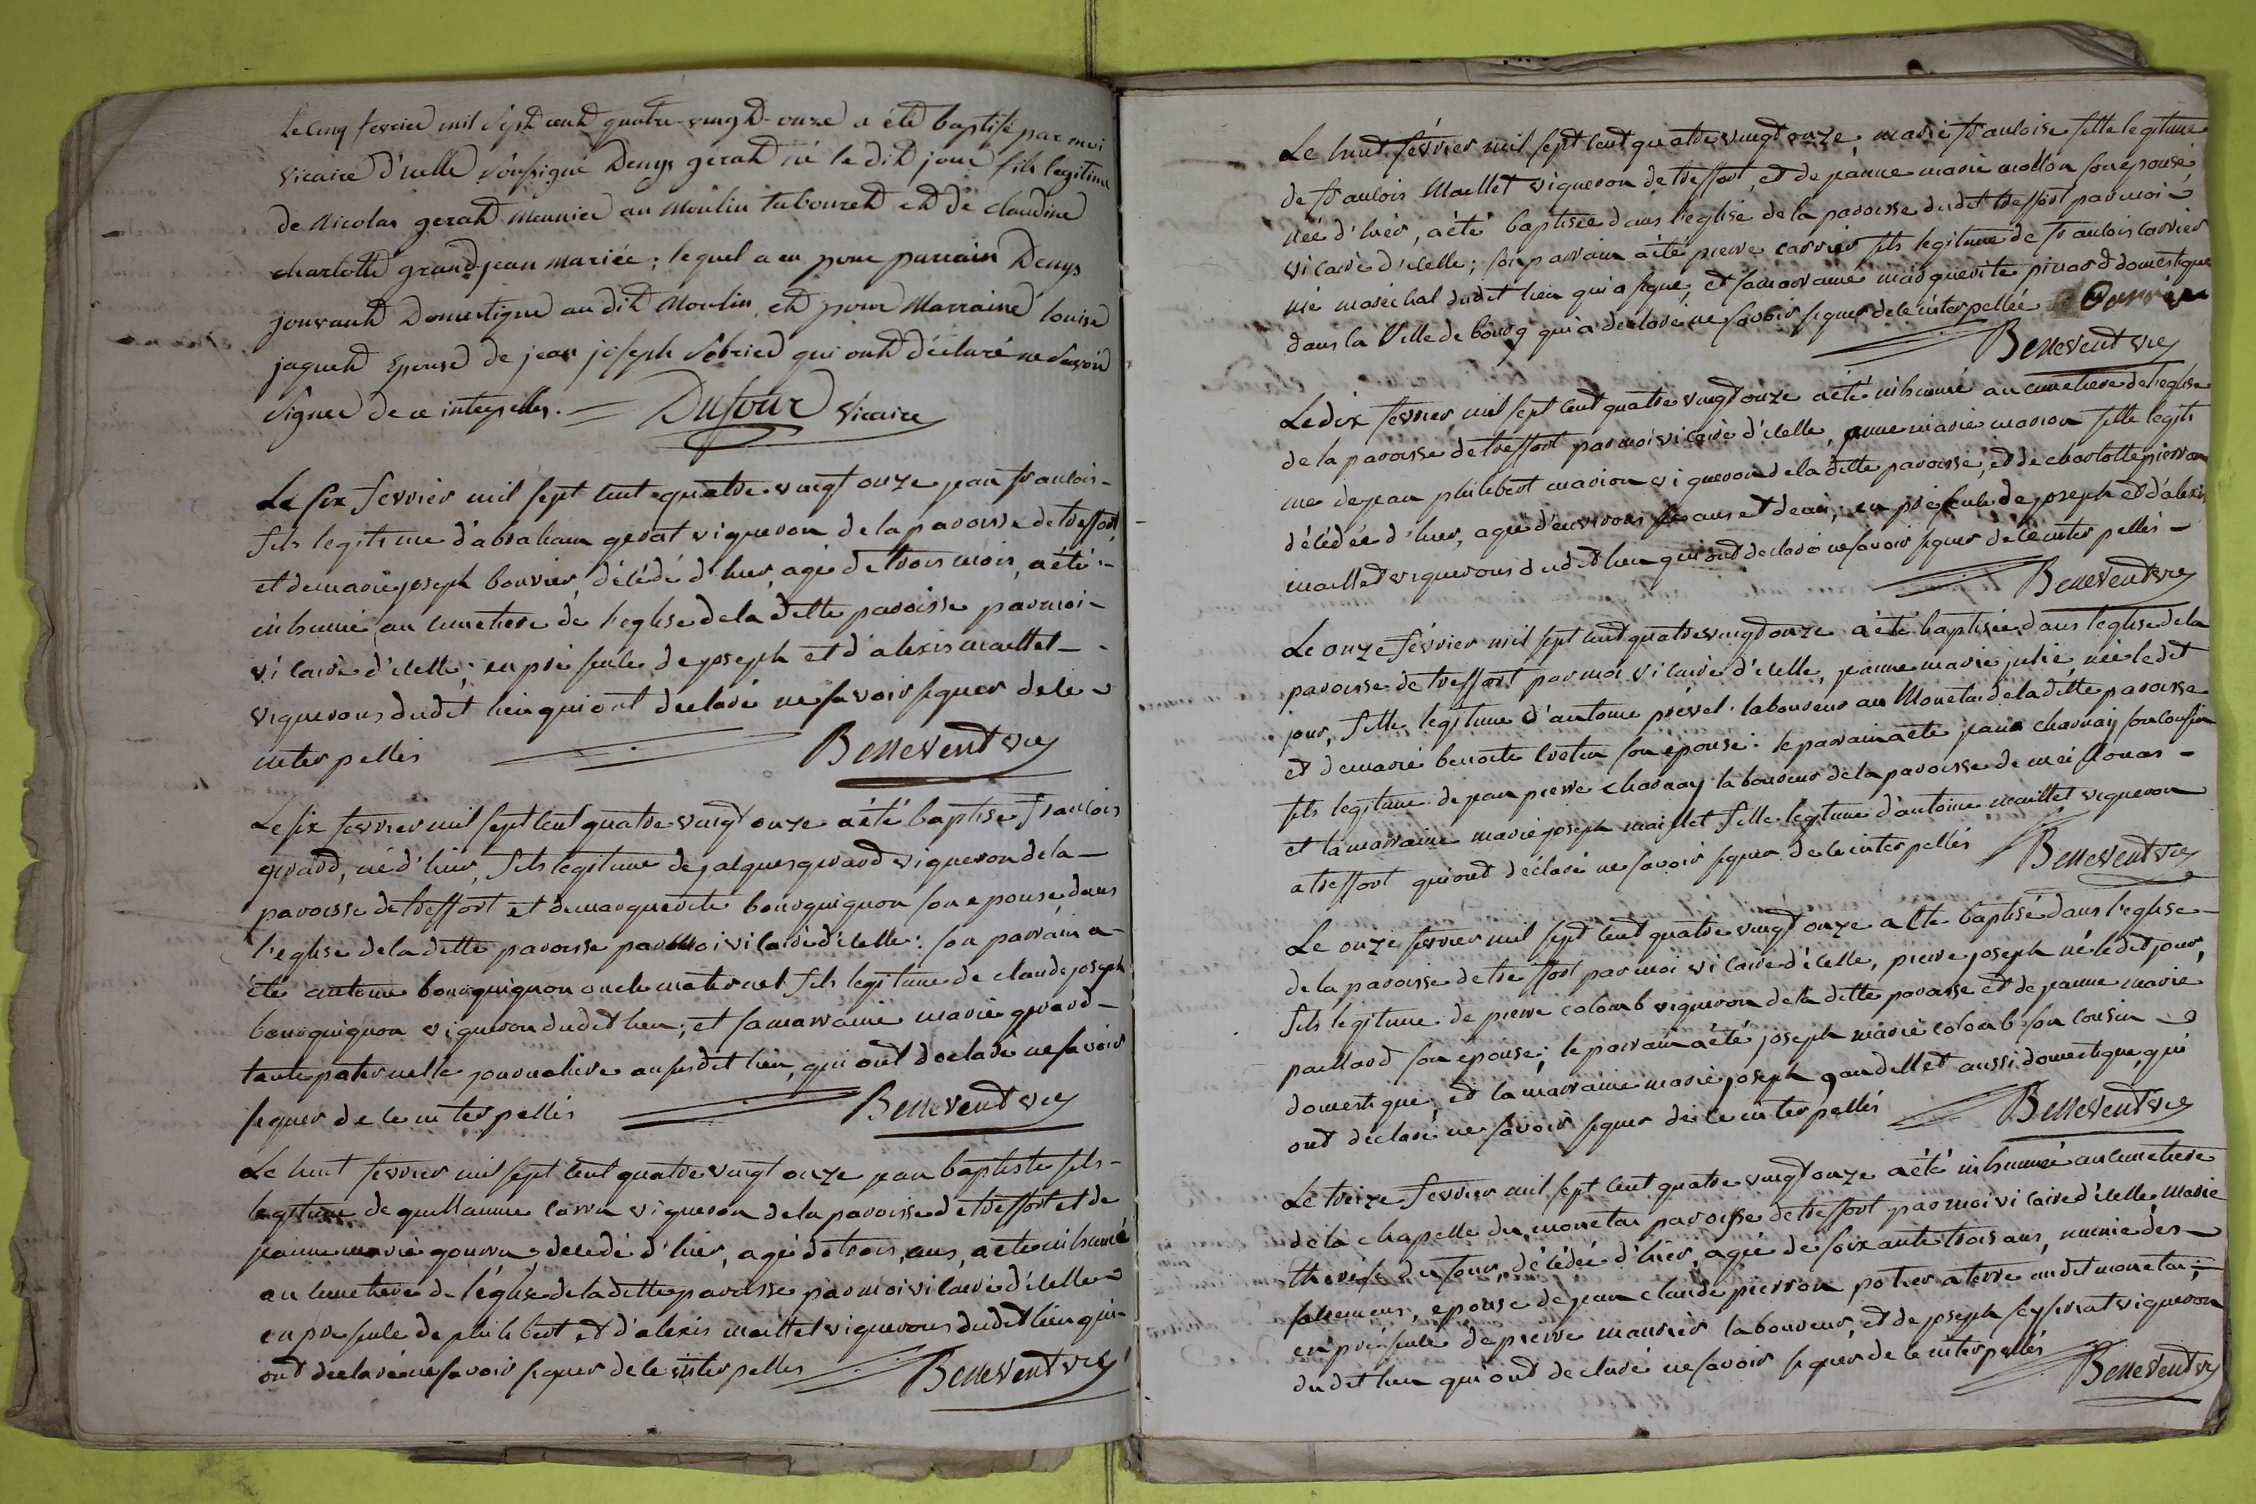 Le Cinq fevrier mil Sept cent quatre-vingt-onze a été baptisé par moi
vicaire d'icelle soussigné Denys gerat né le dit jour fils legitime
de Nicolas gerat meunier au Moulin tabouret et de claudine
charlotte grandjean mariée; lequel a eu pour parrain Denys
jouvent Domestique au dit Moulin et pour Marraine louise
jaquet Epouse de jean joseph Sobrier qui ont déclaré ne Savoir
signer de ce interpellés. Dufour vicaire
Le six fevrier mil sept cent quatre vingt onze jean francois
fils legitime d'abraham gerat vigneron de la paroisse de treffort
et de marie joseph bouvier, décédé d'hier, agé de trois mois, a été
inhumé au cimetiere de l'eglise de la ditte paroisse par moi
vicaire d'icelle; en présence de joseph et d'alexis maillet
vignerons dudit lieu qui ont declaré ne savoir signer de ce
interpellés Benevent vre
Le six fevrier mil sept cent quatre vingt onze a été baptisé francois
girard, né d'hier, fils legitime de jacques girard vigneron de la
paroisse de treffort et de marguerite bourguignon son epouse dans
l'eglise de la ditte paroisse par moi vicaire d'icelle: son parrain a
été antoine bourguignon oncle maternel fils legitime de claude joseph
bourguignon vigneron dudit lieu; et sa marraine marie girard
tante paternelle journaliere au susdit lieu, qui ont declaré ne savoir
signer de ce interpellés Benevent vre
Le huit fevrier mil sept cent quatre vingt onze jean baptiste fils
legitime de guillaume carru vigneron de la paroisse de treffort et de
jeanne marie gouvru, decedé d'hier, agé de trois ans, a été inhumé
au cimetiere de l'église de la ditte paroisse par moi vicaire d'icelle
en presence de philibert et d'alexis maillet vignerons dudit lieu qui
ont declaré ne savoir signer de ce interpellés Benevent vre
Le huit février mil sept cent quatre vingt onze, marie francoise fille legitime
de francois Maillet vigneron de treffort, et de jeanne marie mollon son épouse
née d'hier, a été baptisée dans l'eglise de la paroisse dudit treffort par moi
vicaire d'icelle; son parrain a été pierre carrier fils legitime de francois carrier
mé maréchal dudit lieu qui a signé, et sa marraine marguerite pinard domestique
dans la Ville de bourg qui a declaré ne savoir signer de ce interpellée Carrier
Benevent vre
Le dix fevrier mil sept cent quatre vingt onze a été inhumé au cimetiere de l'eglise
de la paroisse de treffort par moi vicaire d'icelle, anne marie marion fille legiti
me de jean philibert marion vigneron de la ditte paroisse, et de charlotte pierron
décédée d'hier, agée d'environs ans et demi, en présence de joseph et d'alexis
maillet vignerons dudit lieu qui ont declaré ne savoir signer de ce interpellés
Benevent vre
Le onze février mil sept cent quatre vingt onze a été baptisée dans l'eglise de la
paroisse de treffort par moi vicaire d'icelle, jeanne marie julie, née le dit
jour, fille legitime d'antoine prével laboureur au Monetai de la ditte paroisse
et de marie benoite cretin son épouse: le parrain a été jean charnay son cousin
fils legitime de jean pierre charnay laboureur de la paroisse de meillonas
et la marraine marie joseph maillet fille legitime d'antoine maillet vigneron
a treffort qui ont déclaré ne savoir signer de ce interpellés Benevent vre
Le onze fevrier mil sept cent quatre vingt onze a été baptisé dans l'eglise
de la paroisse de treffort par moi vicaire d'icelle, pierre joseph né le dit jour,
fils legitime de pierre colomb vigneron de la ditte paroisse et de jeanne marie
paillard son épouse; le parrain a été joseph marie colomb son cousin
domestique, et la marraine marie joseph gandillet aussi domestique, qui
ont declaré ne savoir signer de ce interpellés Benevent vre
Le treize fevrier mil sept cent quatre vingt onze a été inhumée au cimetiere
de la chapelle du monetai paroisse de treffort par moi vicaire d'icelle Marie
therese dufour, décédée d'hier, agée de soixante trois ans, munie des
sacremens, epouse de jean claude pierron potier a terre audit monetai;
en présence de pierre maurier laboureur, et de joseph seyssiat vigneron
dudit lieu qui ont declaré ne savoir signer de ce interpellés Benevent vre